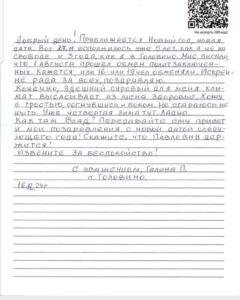 Добрый день! Приближается Новый год, новая
дата. Вот 27.11 исполнилось уже 5 лет, как я не на
свободе и 3 года, как я в Головино. Мне писали,
что 1 августа прошел обмен политзаключен-
ных. Кажется или 16- или 19 чел обменяли. Искрен-
не рада за всех, поздравляю.
Конечно, здешний суровый для меня кли-
мат высасывает из меня здоровье. Хожу
с тростью, согнувшись и боком. Но стараюсь не
ныть. Уже четвертая зима тут. Ладно.
Как там Влад? Передавайте ему привет
и мои поздравления с новой датой следу-
ющего года! Скажите, что Павловна дер-
жится!
Извените за беспокойство!
С уважением, Галина П.
п. Головино.
16.12.24г